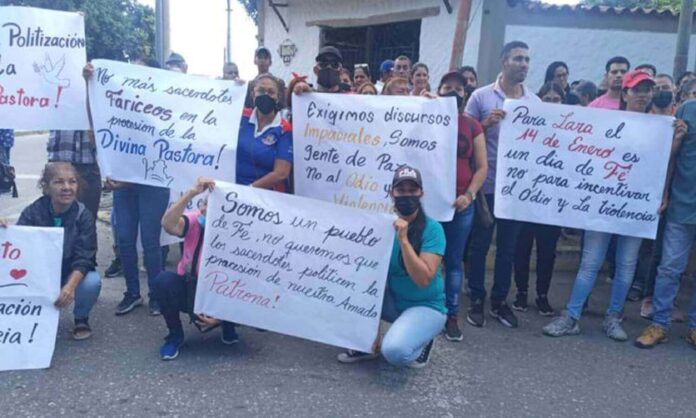 Politización
la
Pastora!
No más sacerdoles
Fariceos en la
procesión de la
Divina Pastora!
Exigimos discursos
Impaciales, Somos
gente de Paz
No al Odio y a
Violencia
Para Lara el
14 de Enero es
un día de Fé
no para incentivar
el Odio y La Violencia
Somos un pueblo
de Fe, no queremos que
los sacerdoles politicen la
procesión de nuestra Amada
Patrona!